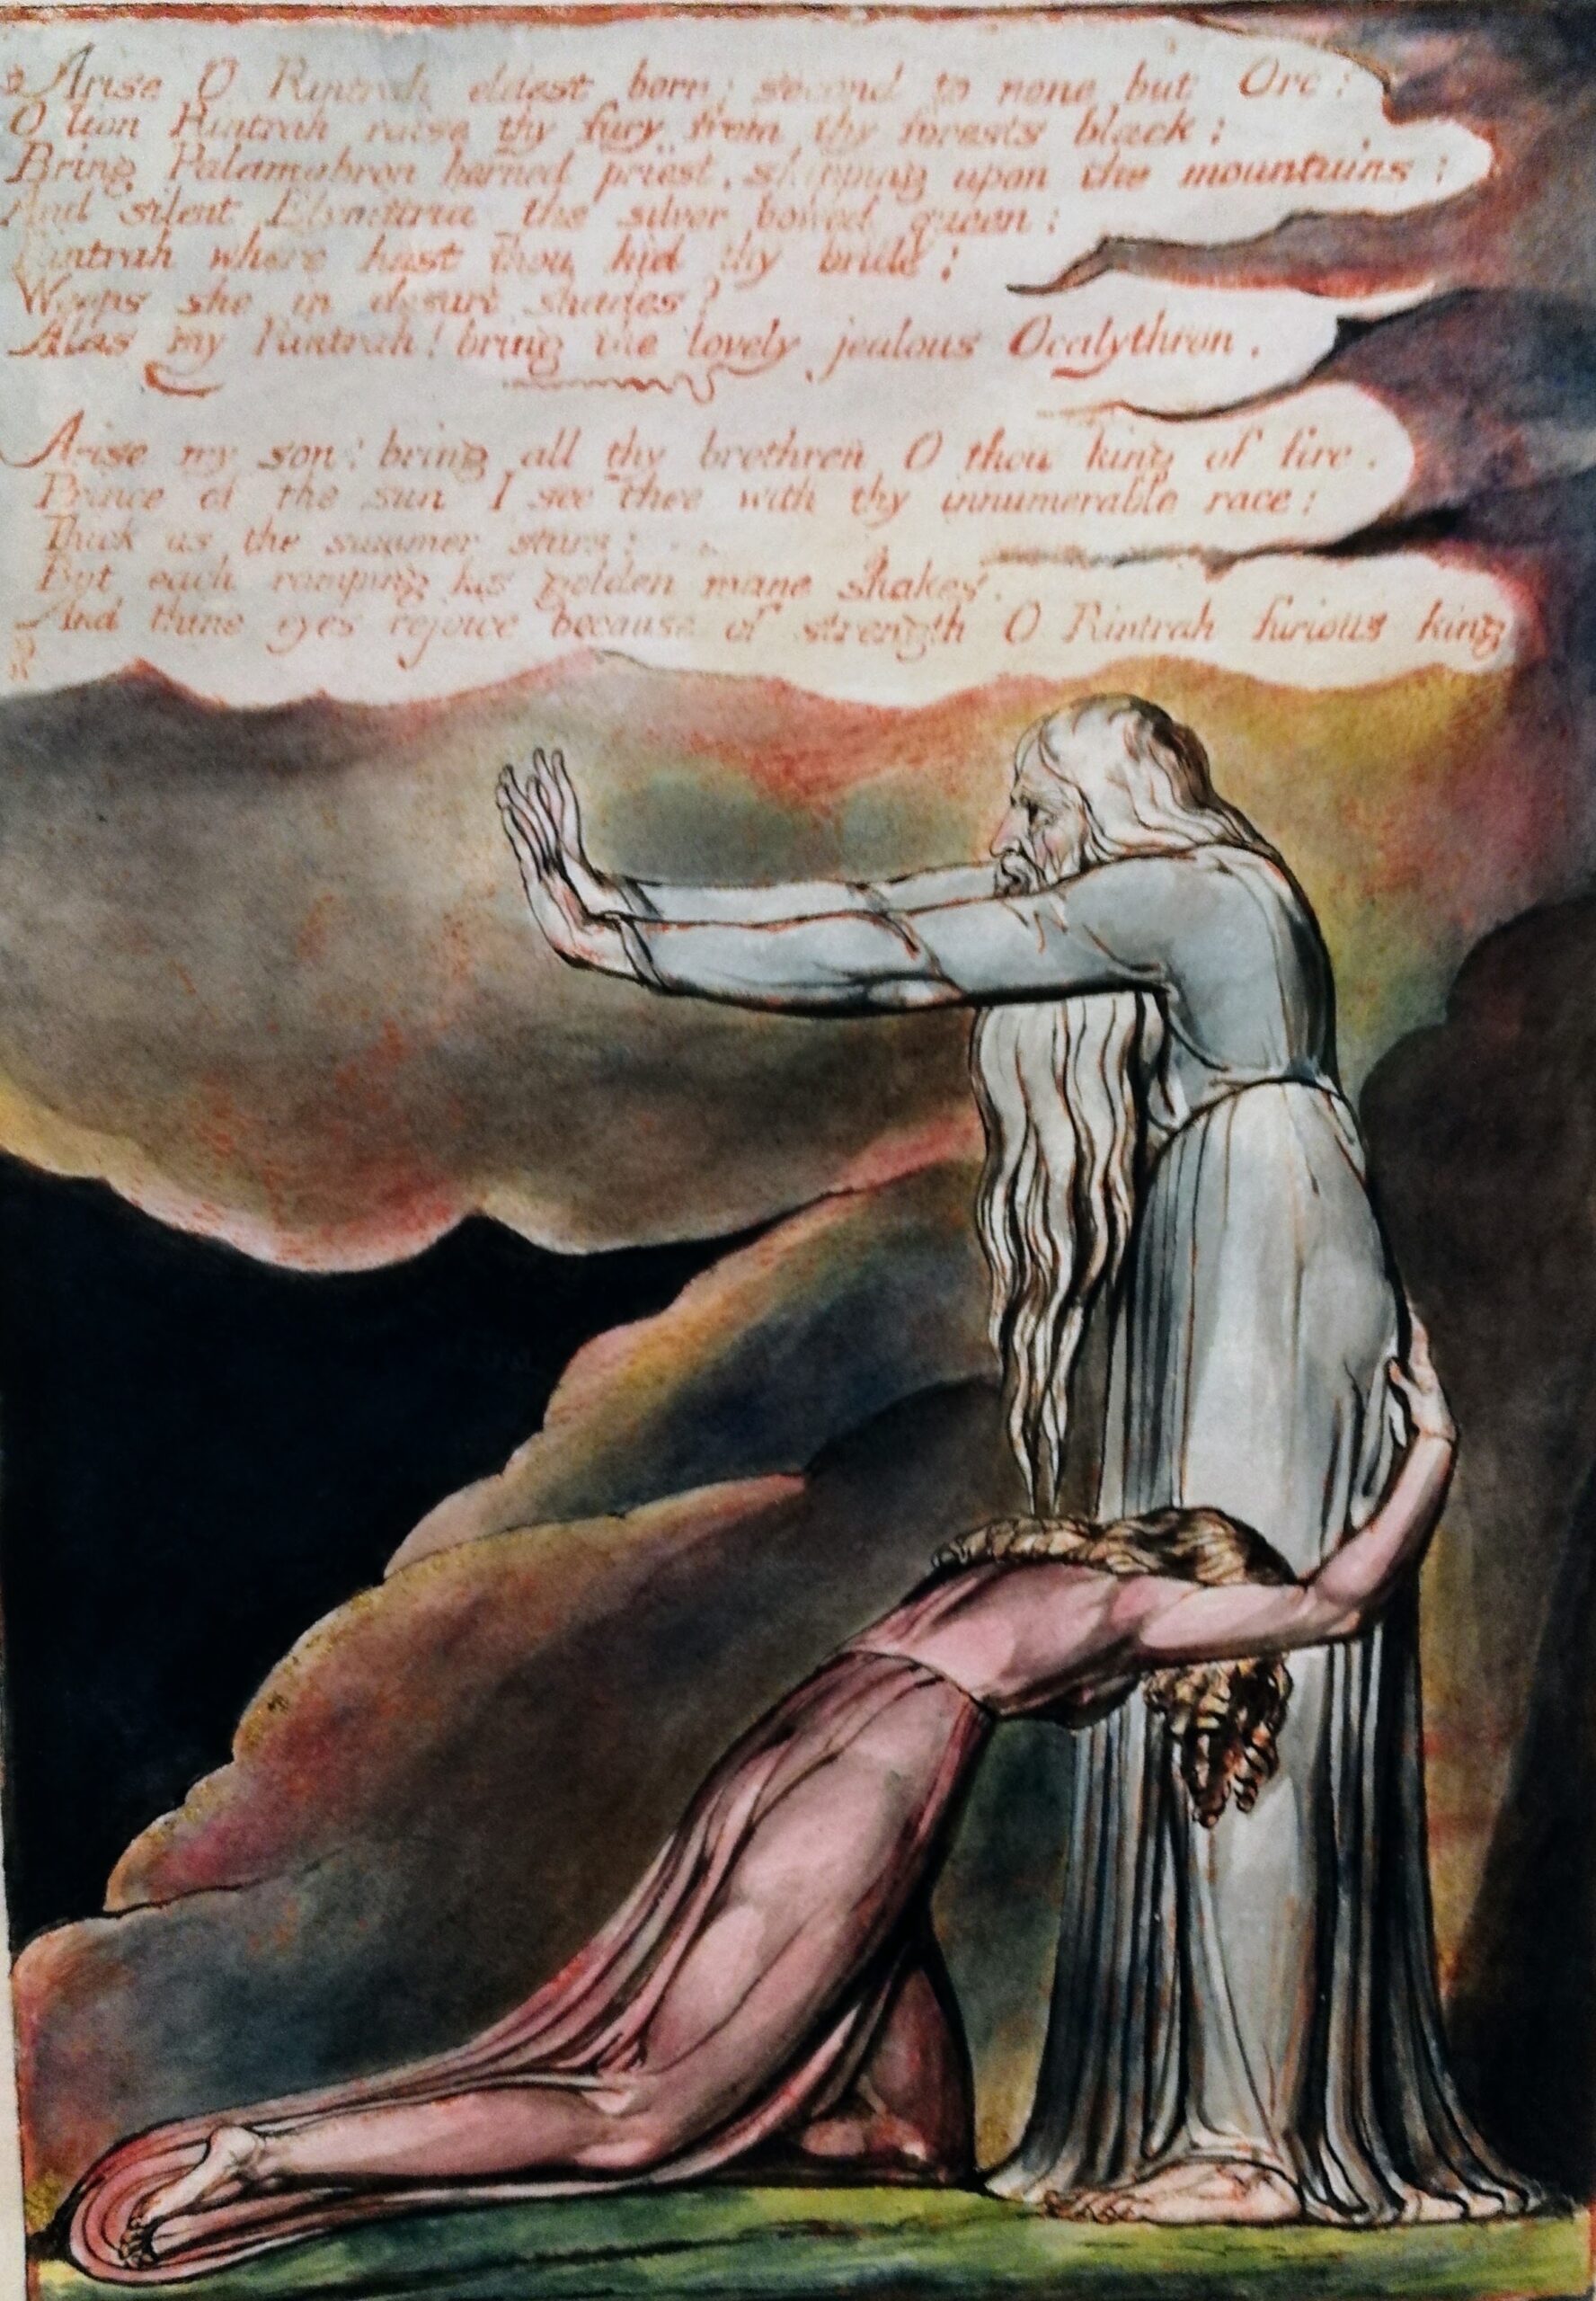 Arise O Rintrah eldest born: second to none but Orc:
O lion Rintrah raise thy fury from thy forests black:
Bring Palamabron horned priest, skipping upon the mountains:
And silent Elynittria the silver bowed queen:
Rintrah where hast thou hid thy bride:
Weeps she in desart shades?
Alas my Rintrah! bring the lovely jealous Ocalythron.
Arise my son: bring all thy brethren O thou king of fire.
Prince of the sun I see thee with thy innumerable race:
Thick as the summer stars:
But each ramping his golden mane shakes.
And thine eyes rejoice because of strength O Rintrah furious king